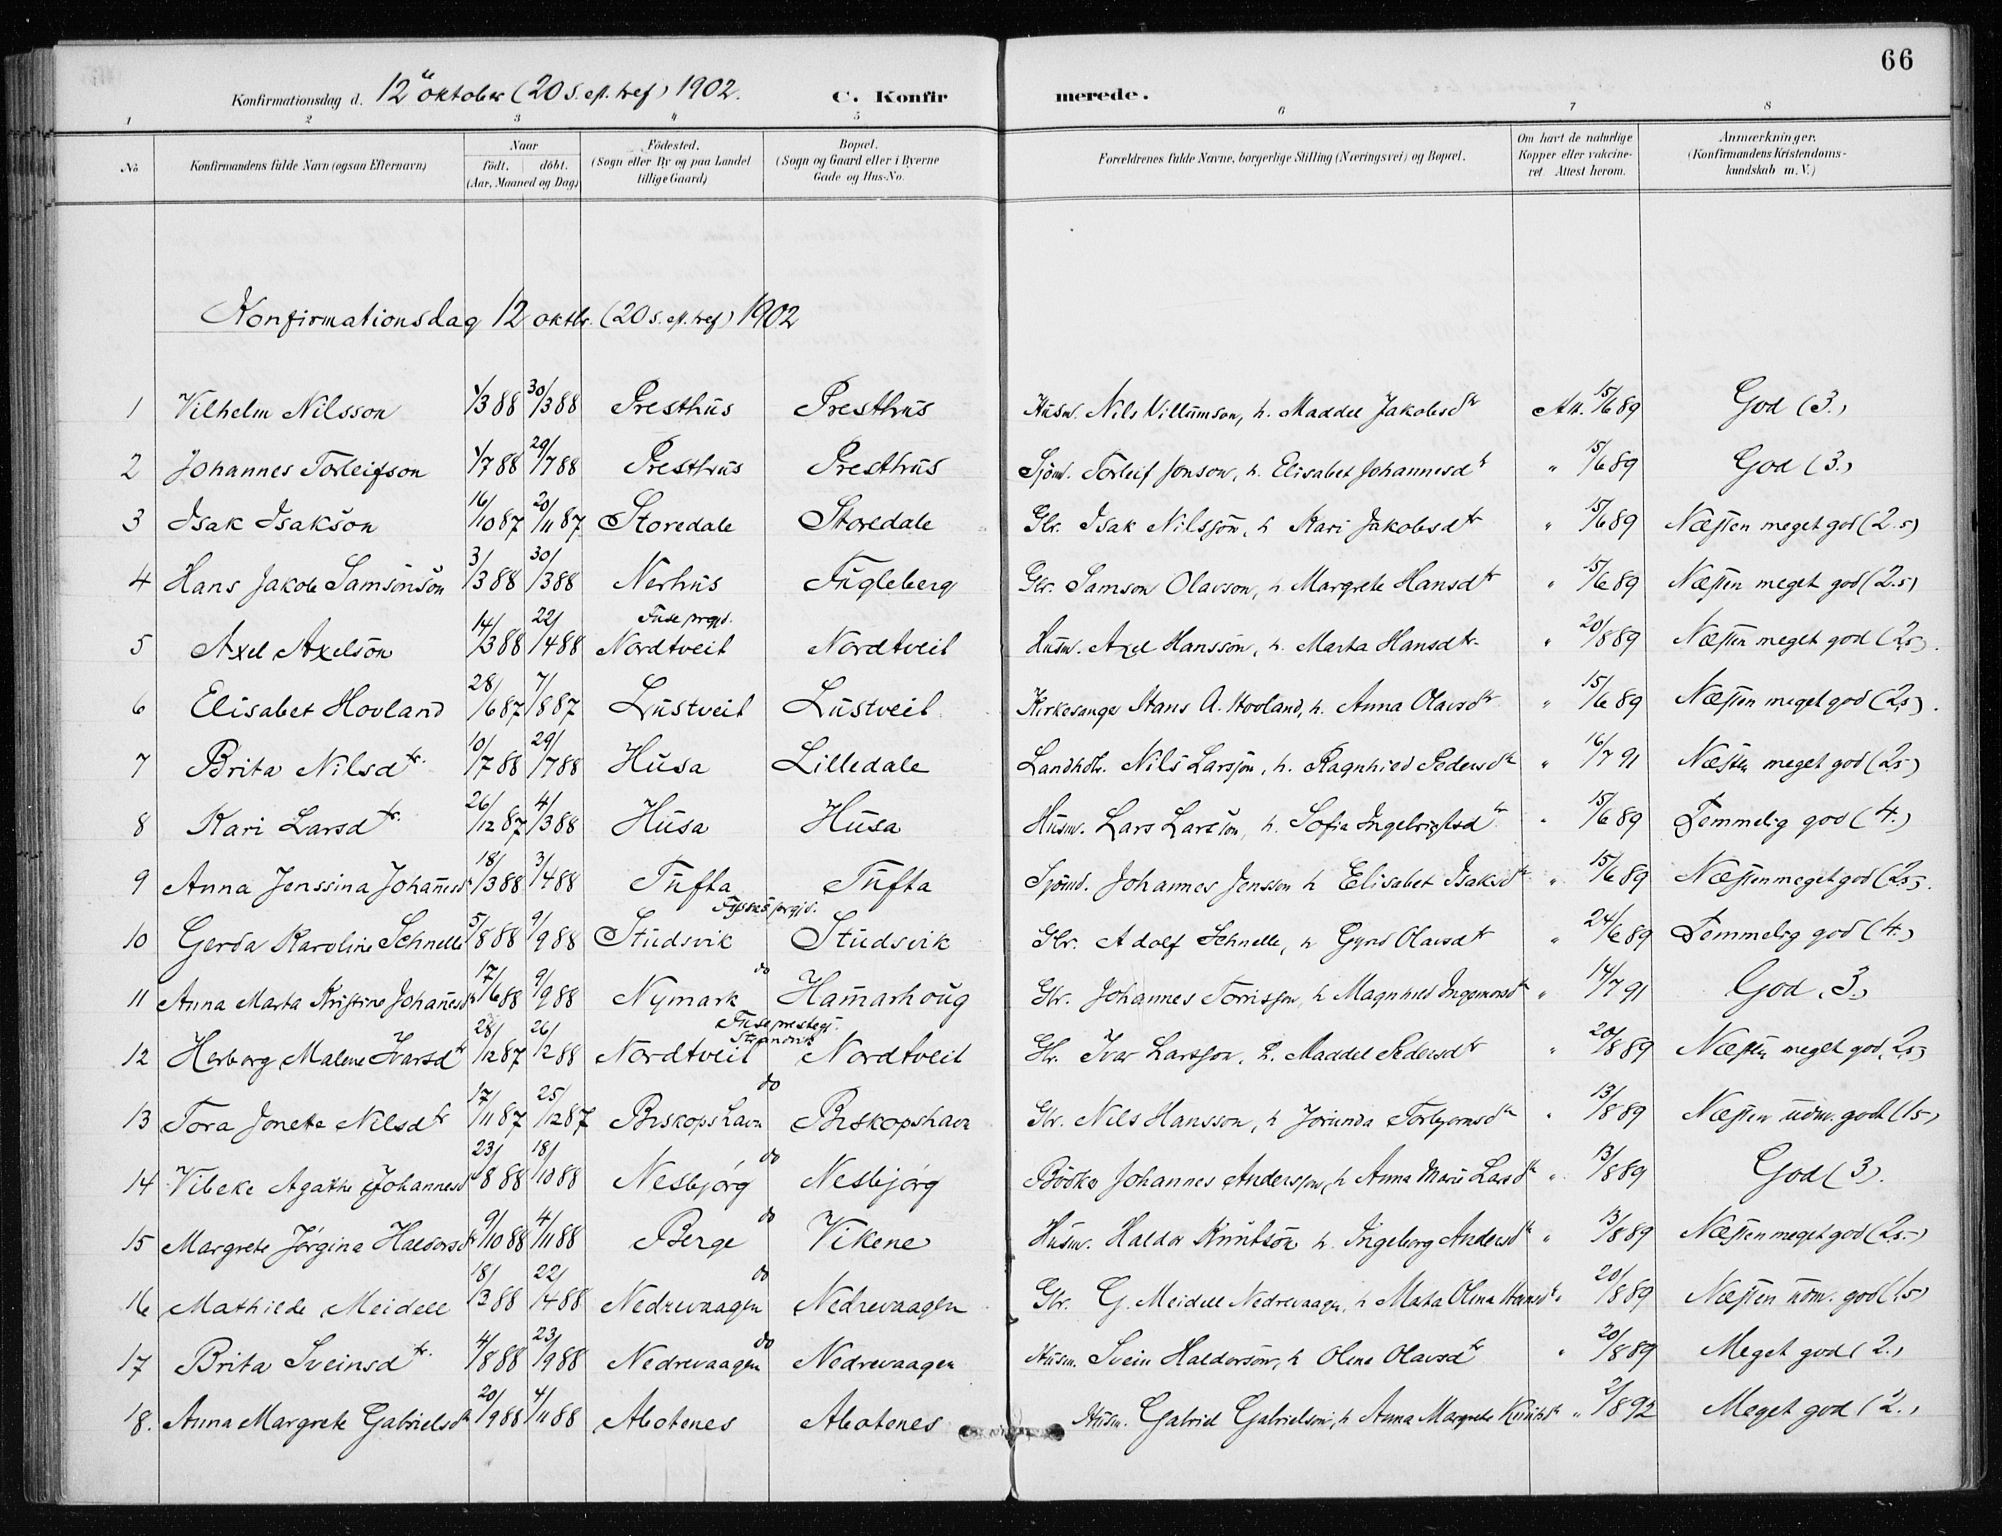 66
Konfirmationsdag d. 12te oktober (20 s. eft. tref) 1902. C. Konfir merede.
1 2 3 4 5 6 7 8
No Konfirmandens fulde Navn (ogsaa Efternavn) Naar født. døbt. (Aar, Maaned og Dag) Fødested. (Sogn eller By og paa Landet tillige Gaard) Bopæl. (Sogn og Gaard eller i Byerne Gade og Hus-No. Forældrenes fulde Navne, borgerlige Stilling (Næringsvei) og Bopæl. Om havt de naturlige Kopper eller vakcineret Attest herom. Anmærkninger. (Konfirmandens Kristendomskundskab m. V.)
Konfirmationsdag 12 oktbr. (20 s. eft. tref) 1902
1 Vilhelm Nilsson 1/3 88 30/3 88 Presthus Presthus Husm. Nils Villumson, h. Maddel Jakobsdtr Att. 15/6 89 God (3.)
2 Johannes Torleifson 1/7 88 29/7 88 Presthus Presthus Sjömd. Torleif Jonson, h. Elisabet Johannesdtr " 15/6 89 God (3.)
3 Isak Isakson 16/10 87 20/11 87 Storedale Storedale Gbr. Isak Nilsson, h Kari Jakobsdtr " 15/6 89 Næsten meget god (2.5)
4 Hans Jakob Samsonson 3/3 88 30/3 88 Nerhus Fugleberg Gbr. Samson Olavson, h Margrete Hansdtr " 15/6 89 Næsten meget god (2.5)
Fuse prgj.
5 Axel Axelson 14/3 88 22/4 88 Nordtveit Nordtveit Husm. Axel Hansson, h. Marta Hansdtr. " 20/8 89 Næsten meget god (2,5).
6 Elisabet Hovland 28/6 87 7/8 87 Lustveit Lustveit Kirkesanger Hans A. Hovland, h. Anna Olavsdtr " 15/6 89 Næsten meget god (2,5).
7 Brita Nilsdtr. 10/7 88 29/7 88 Husa Lilledale Landhdlr. Nils Larsson, h. Ragnhild Pedersdtr " 16/7 91 Næsten meget god (2,5)
8 Kari Larsdtr. 26/12 87 4/3 88 Husa Husa Husm. Lars Larsson, h. Sofia Ingebrigtsdtr " 15/6 89 Temmelig god (4.)
9 Anna Jenssina Johannesdtr 18/3 88 3/4 88 Tufta Tufta Sjömd. Johannes Jensson h Elisabet Isaksdtr " 15/6 89 Næsten meget god (2,5).
prgj.
10 Gerda Karoline Schnelle 5/8 88 9/9 88 Studsvik Studsvik Gbr. Adolf Schnelle, h Gyrid Olavsdtr " 24/6 89 Temmelig god (4.)
do
11 Anna Marta Kristine Johannesdtr 17/6 88 9/9 88 Nymark Hammarhoug Gbr. Johannes Torrisson, h Magnhild Ingemorsdtr " 14/7 91 God (3.)
Fuse prestegj.
12 Herborg Malene Ivarsdtr 28/12 87 26/2 88 Nordtveit Nordtveit Gbr. Ivar Larsson, h. Maddel Pedersdtr " 20/8 89 Næsten meget god, 2,5)
do
13 Tora Jonette Nilsdtr 17/11 87 25/12 87 Biskopshavn Biskopshavn Gbr. Nils Hansson, h Jorunda Torbjørnsdtr " 13/8 89 Næsten udm. godt (1,5)
do
14 Vibeke Agathe Johannesd 23/8 88 18/10 88 Nesbjørg Nesbjørg Bödker Johannes Andersson, h Anna Marie Larsdtr " 13/8 89 God (3).
do
15 Margrete Jørgina Haldorsdtr 9/10 88 4/11 88 Berge Vikene Husm. Haldor Knutson h. Ingeborg Andersdtr " 13/8 89 Næsten meget god (2,5)
do
16 Mathilde Meidell 18/3 88 22/4 88 Nedrevaagen Nedrevaagen Gbr. G. Meidell Nedrevaagen, h Marta Olina Hansdtr " 20/8 89 Næsten udm. god (1,5)
do
17 Brita Sveinsdtr. 4/8 88 23/9 88 Nedrevaagen Nedrevaagen Husm. Svein Haldorson, h Olina Olavsdtr " 20/8 89 Meget god (2.)
18. Anna Margrete Gabrielsdtr 20/9 88 4/11 88 Abotenes Abotenes Husm. Gabriel Gabrielson, h Anna Margrete Knutsdtr " 2/8 92 Meget god (2.)